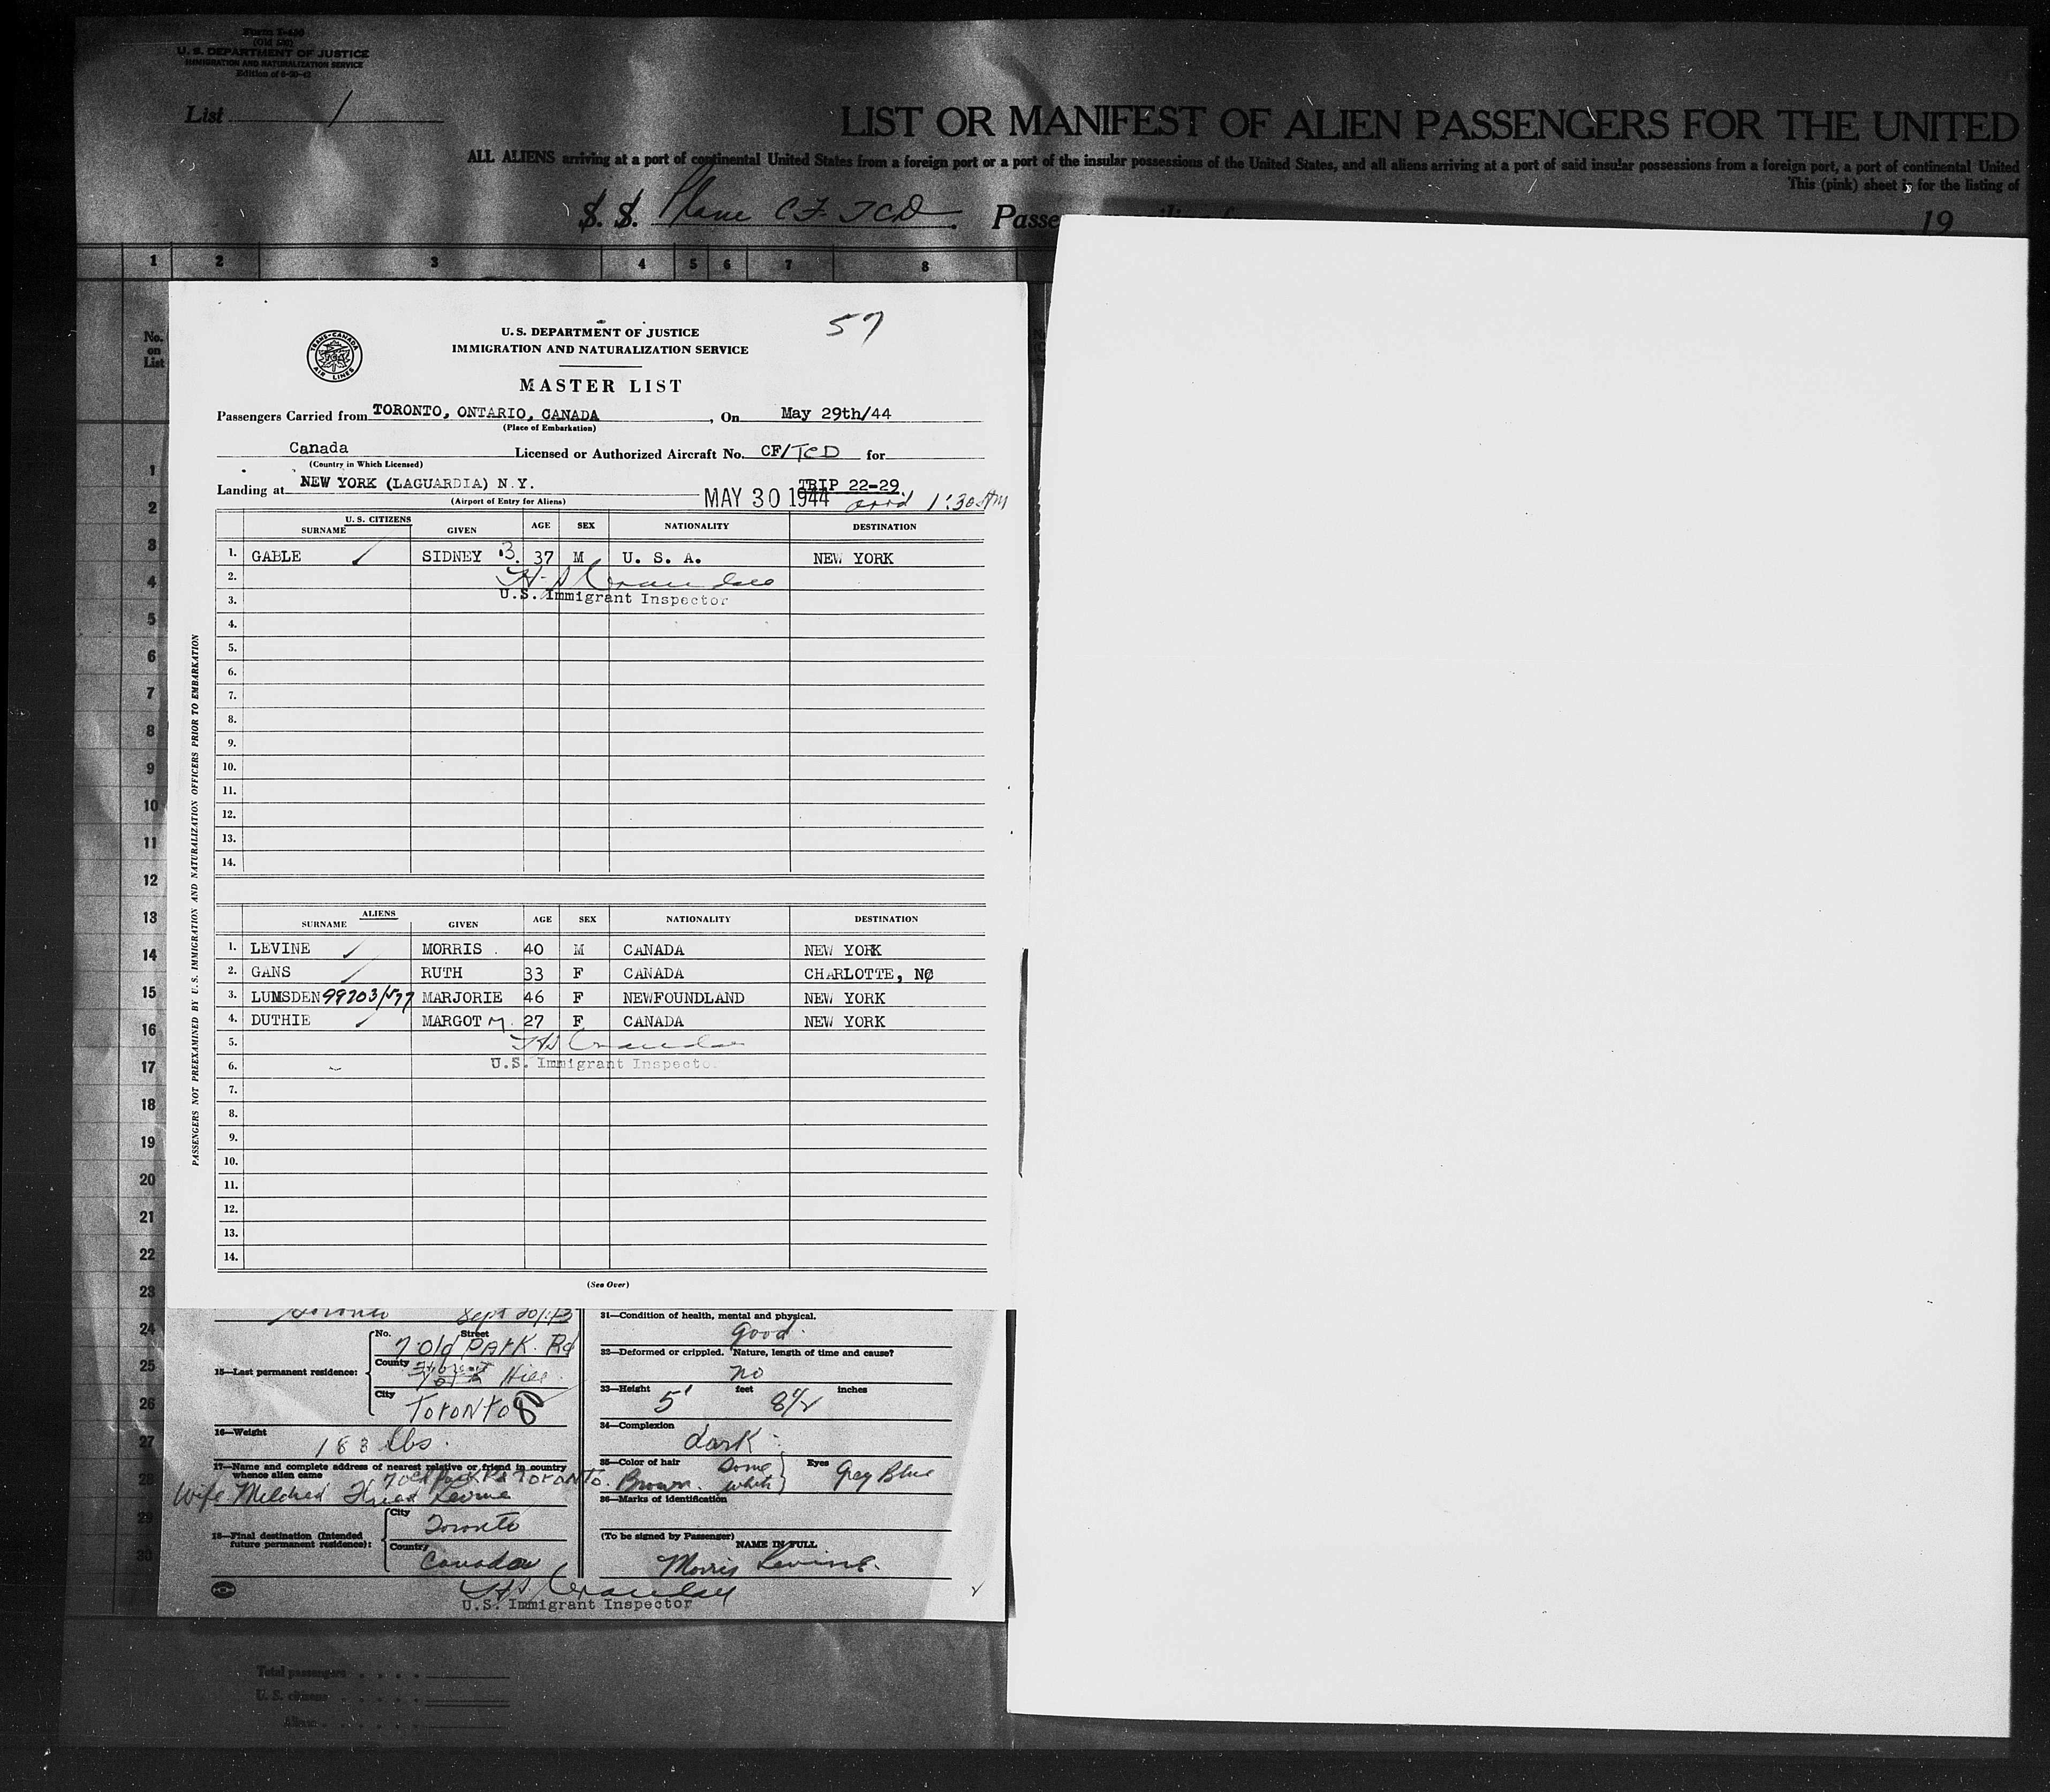 Form I-486
(Old 500)
U. S. DEPARTMENT OF JUSTICE
IMMIGRATION AND NATURALIZATION SERVICE
List 1
LIST OR MANIFEST OF ALIEN PASSENGERS FOR THE UNITED
ALL ALIENS arriving at a port of continental United States from a foreign port or a port of the insular possessions of the United States, and all aliens arriving at a port of said insular possessions from a foreign port, a port of continental United
This (pink) sheet is for the listing of
S. S. Plane CF-TCD Passe 19
1 2 3 4 5 6 7 8
No. on List
57
TRANS-CANADA AIR LINES
U. S. DEPARTMENT OF JUSTICE
IMMIGRATION AND NATURALIZATION SERVICE
MASTER LIST
Passengers Carried from TORONTO, ONTARIO, CANADA, On May 29th/44
(Place of Embarkation)
Canada Licensed or Authorized Aircraft No. CF/TCD for
(Country in Which Licensed)
Landing at NEW YORK (LAGUARDIA) N.Y. TRIP 22-29.
(Airport of Entry for Aliens) MAY 30 1944 arrd 1:30 AM
U. S. CITIZENS
SURNAME GIVEN AGE SEX NATIONALITY DESTINATION
1. GABLE SIDNEY B. 37 M U. S. A. NEW YORK
2.
3. U.S. Immigrant Inspector
4.
5.
6.
7.
8.
9.
10.
11.
12.
13.
14.
ALIENS
SURNAME GIVEN AGE SEX NATIONALITY DESTINATION
1. LEVINE MORRIS 40 M CANADA NEW YORK
2. GANS RUTH 33 F CANADA CHARLOTTE, NC
3. LUMSDEN 99703/577 MARJORIE 46 F NEWFOUNDLAND NEW YORK
4. DUTHIE MARGOT M. 27 F CANADA NEW YORK
5.
6. U.S. Immigrant Inspector
7.
8.
9.
10.
11.
12.
13.
14.
(See Over)
PASSENGERS NOT PREEXAMINED BY U. S. IMMIGRATION AND NATURALIZATION OFFICERS PRIOR TO EMBARKATION
1
2
3
4
5
6
7
8
9
10
11
12
13
14
15
16
17
18
19
20
21
22
23
24
25
26
27
28
29
30
Toronto Sept
15—Last permanent residence:
No. Street
7 Old PARK Rd
County Hill
City
Toronto
16—Weight
183 lbs.
17—Name and complete address of nearest relative or friend in country
whence alien came 7 Old Park Rd TORONTO.
Wife Mildred Levine
18—Final destination (Intended
future permanent residence):
City
Toronto
Country
Canada
31—Condition of health, mental and physical.
Good
32—Deformed or crippled. Nature, length of time and cause?
no
33—Height 5' feet 8½ inches
34—Complexion
dark
35—Color of hair Brown some white Eyes Grey Blue
36—Marks of identification
(To be signed by Passenger)
NAME IN FULL
Morris Levine.
U.S. Immigrant Inspector
Total passengers
U. S. citizens
Aliens